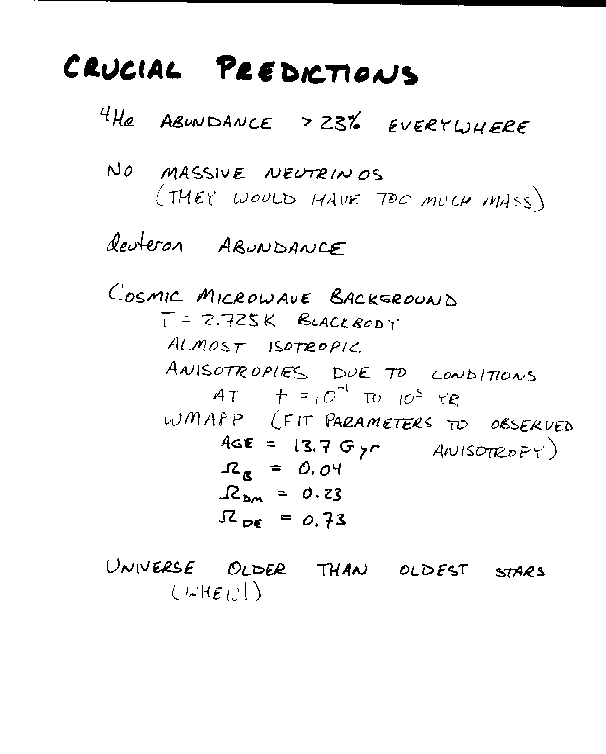 CRUCIAL PREDICTIONS
⁴He ABUNDANCE > 23% EVERYWHERE
NO MASSIVE NEUTRINOS
(THEY WOULD HAVE TOO MUCH MASS)
deuteron ABUNDANCE
COSMIC MICROWAVE BACKGROUND
T = 2.725K BLACKBODY
ALMOST ISOTROPIC
ANISOTROPIES DUE TO CONDITIONS
AT t = 10⁻¹ TO 10⁵ YR
WMAPP (FIT PARAMETERS TO OBSERVED
AGE = 13.7 Gyr ANISOTROPY)
Ω_B = 0.04
Ω_DM = 0.23
Ω_DE = 0.73
UNIVERSE OLDER THAN OLDEST STARS
(WHEW!)